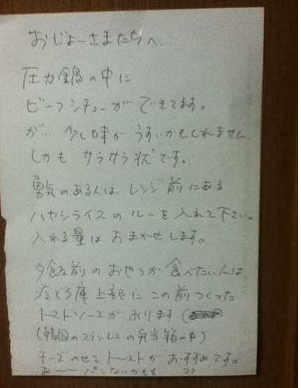 おじょーさまたちへ
圧力鍋の中に
ビーフシチューができてます。
が… 少し味がうすいかもしれません
しかもサラサラ状です。
勇気のあるんはレンジ前にある
ハヤシライスのルーを入れて下さい。
入れる量はおまかせします。
夕飯前のおやつが食べたい人は
冷ぞう庫上段にこの前つくった
トマトソースがあります
(韓国のステンレスの弁当箱の中)
チーズのせてトーストがおすすめです。
あ〜〜パンないかも